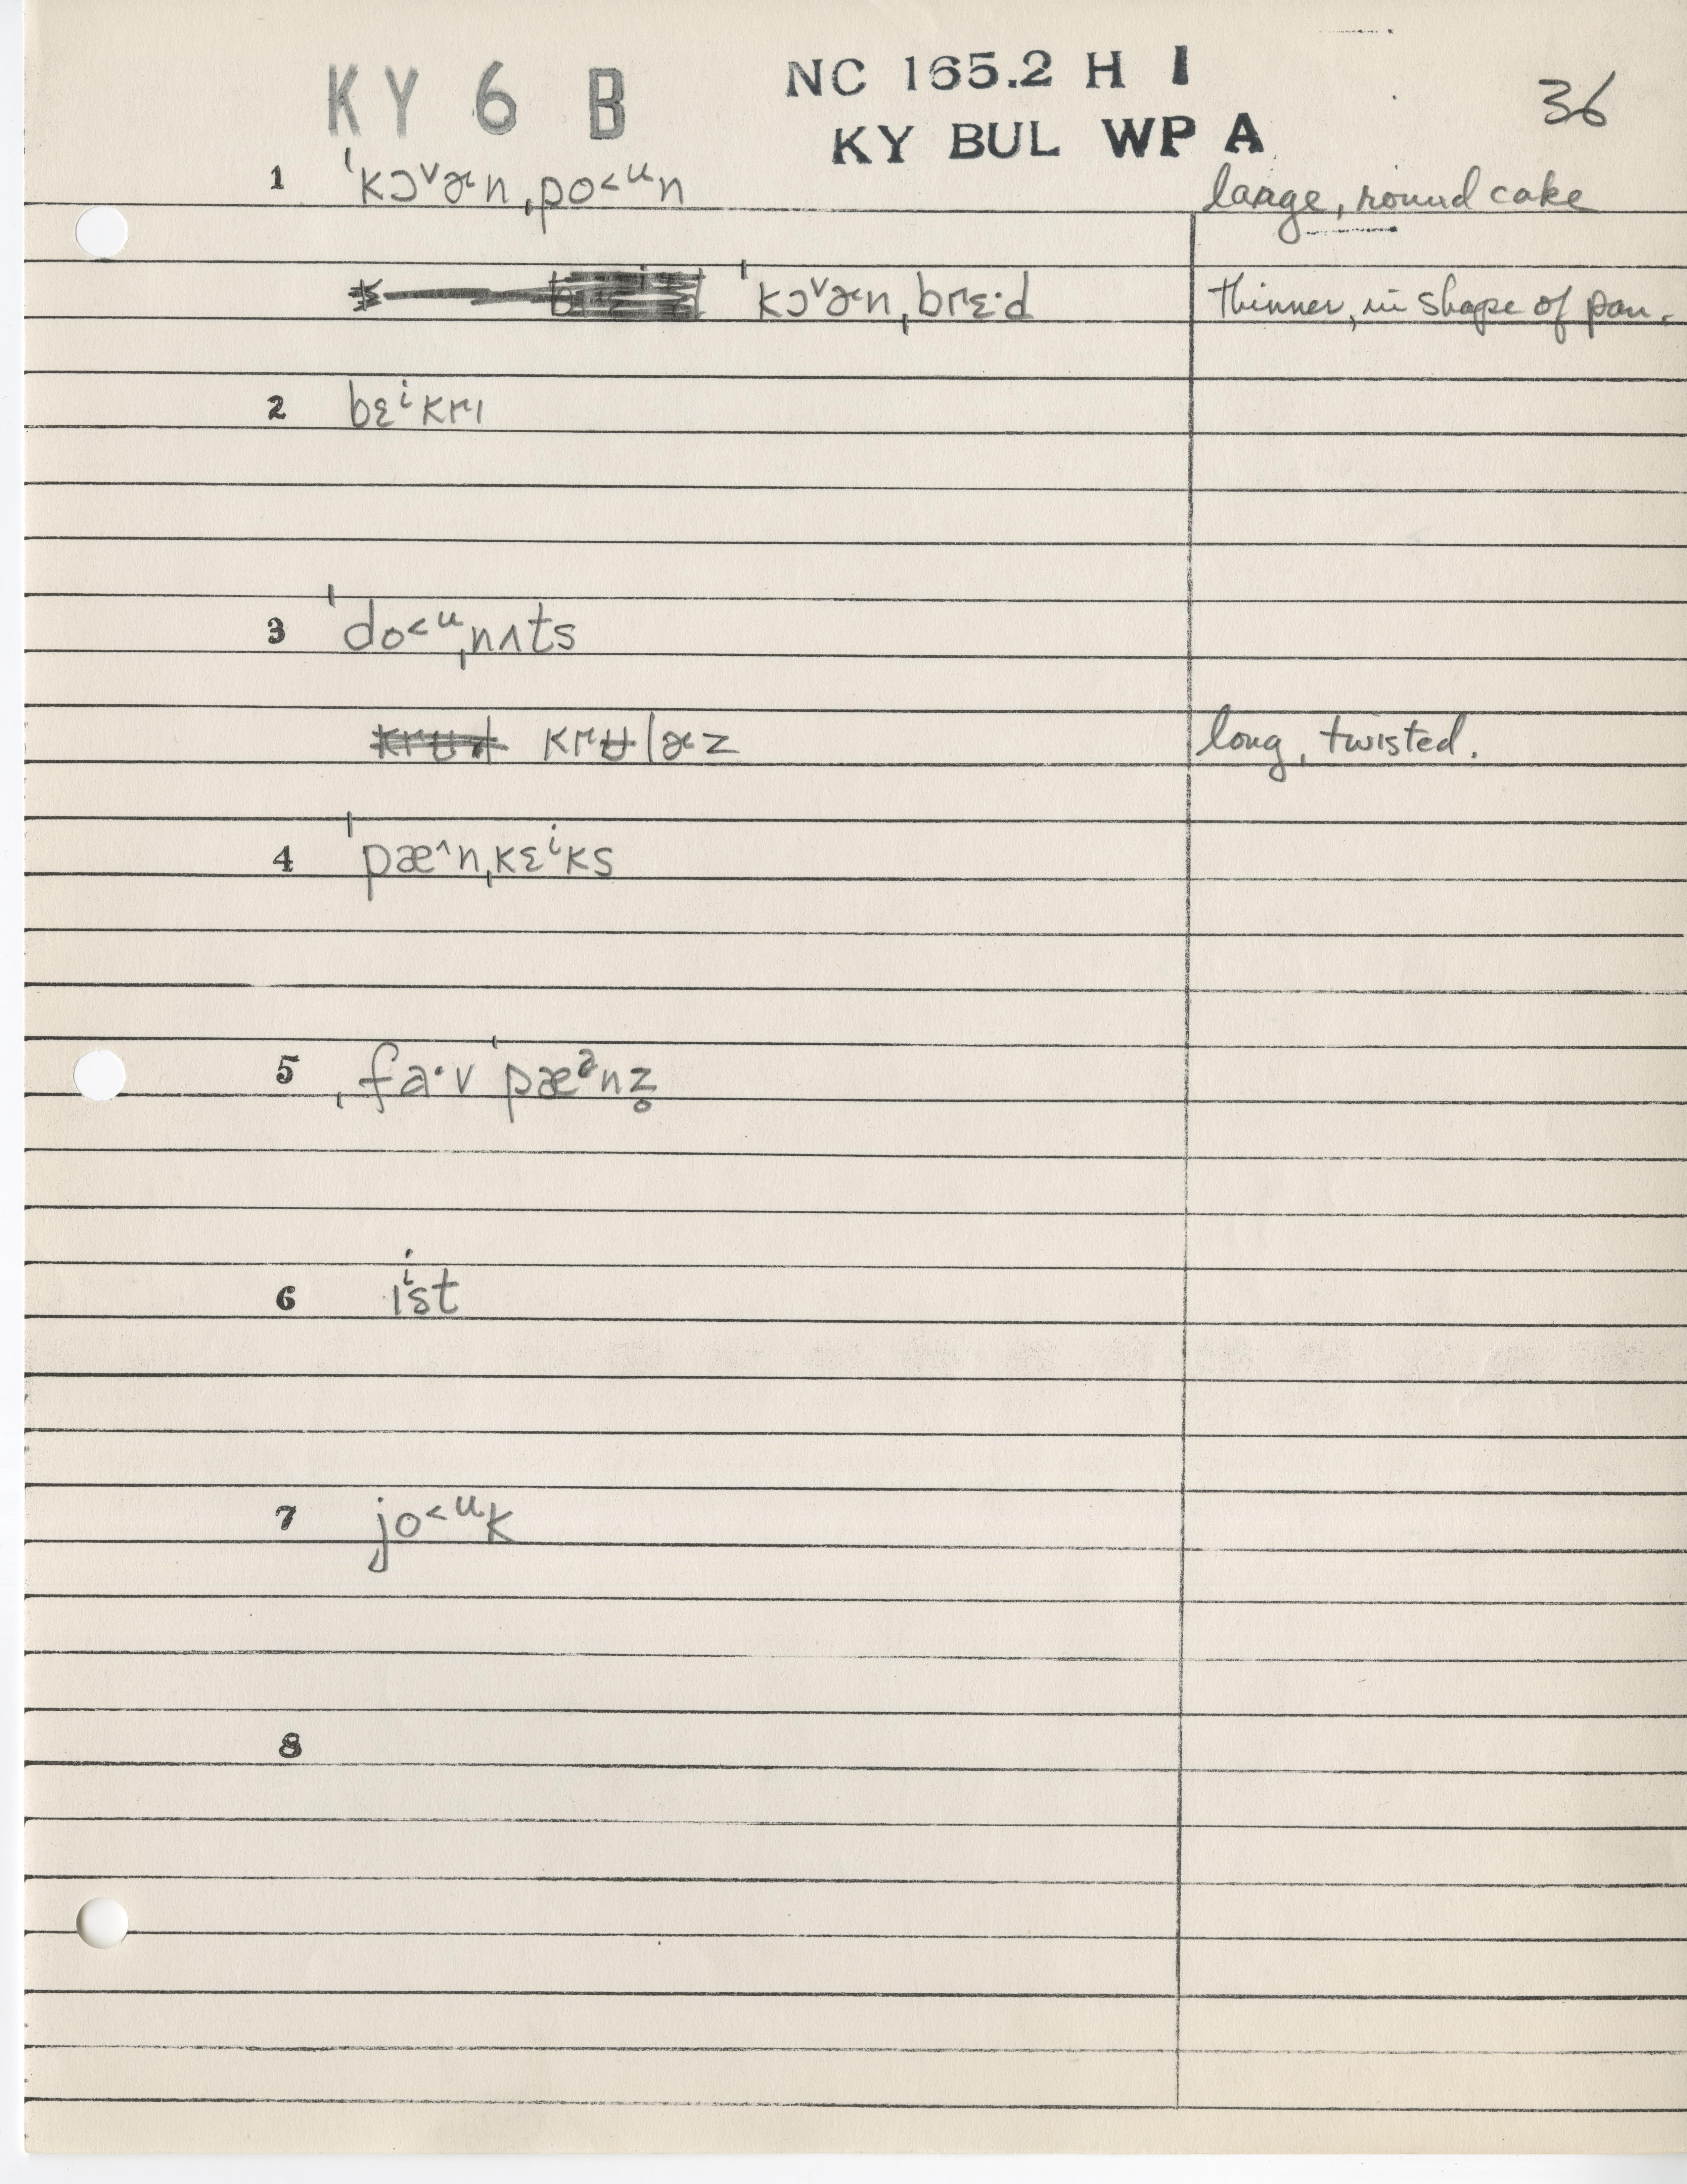 KY 6 B NC 165.2 H I 36
KY BUL WP A
1 ˈkɔ˅ɚn ˌpo˂ᵘn large, round cake
ˈkɔ˅ɚn ˌbrɛ·d thinner, in shape of pan.
2 bɛⁱkrɪ
3 ˈdo˂ᵘˌnʌts
krʉlɚz long, twisted.
4 ˈpæ˄nˌkɛⁱks
5 ˌfa·v ˈpæᵊnz̥
6 ɪⁱst
7 jo˂ᵘk
8